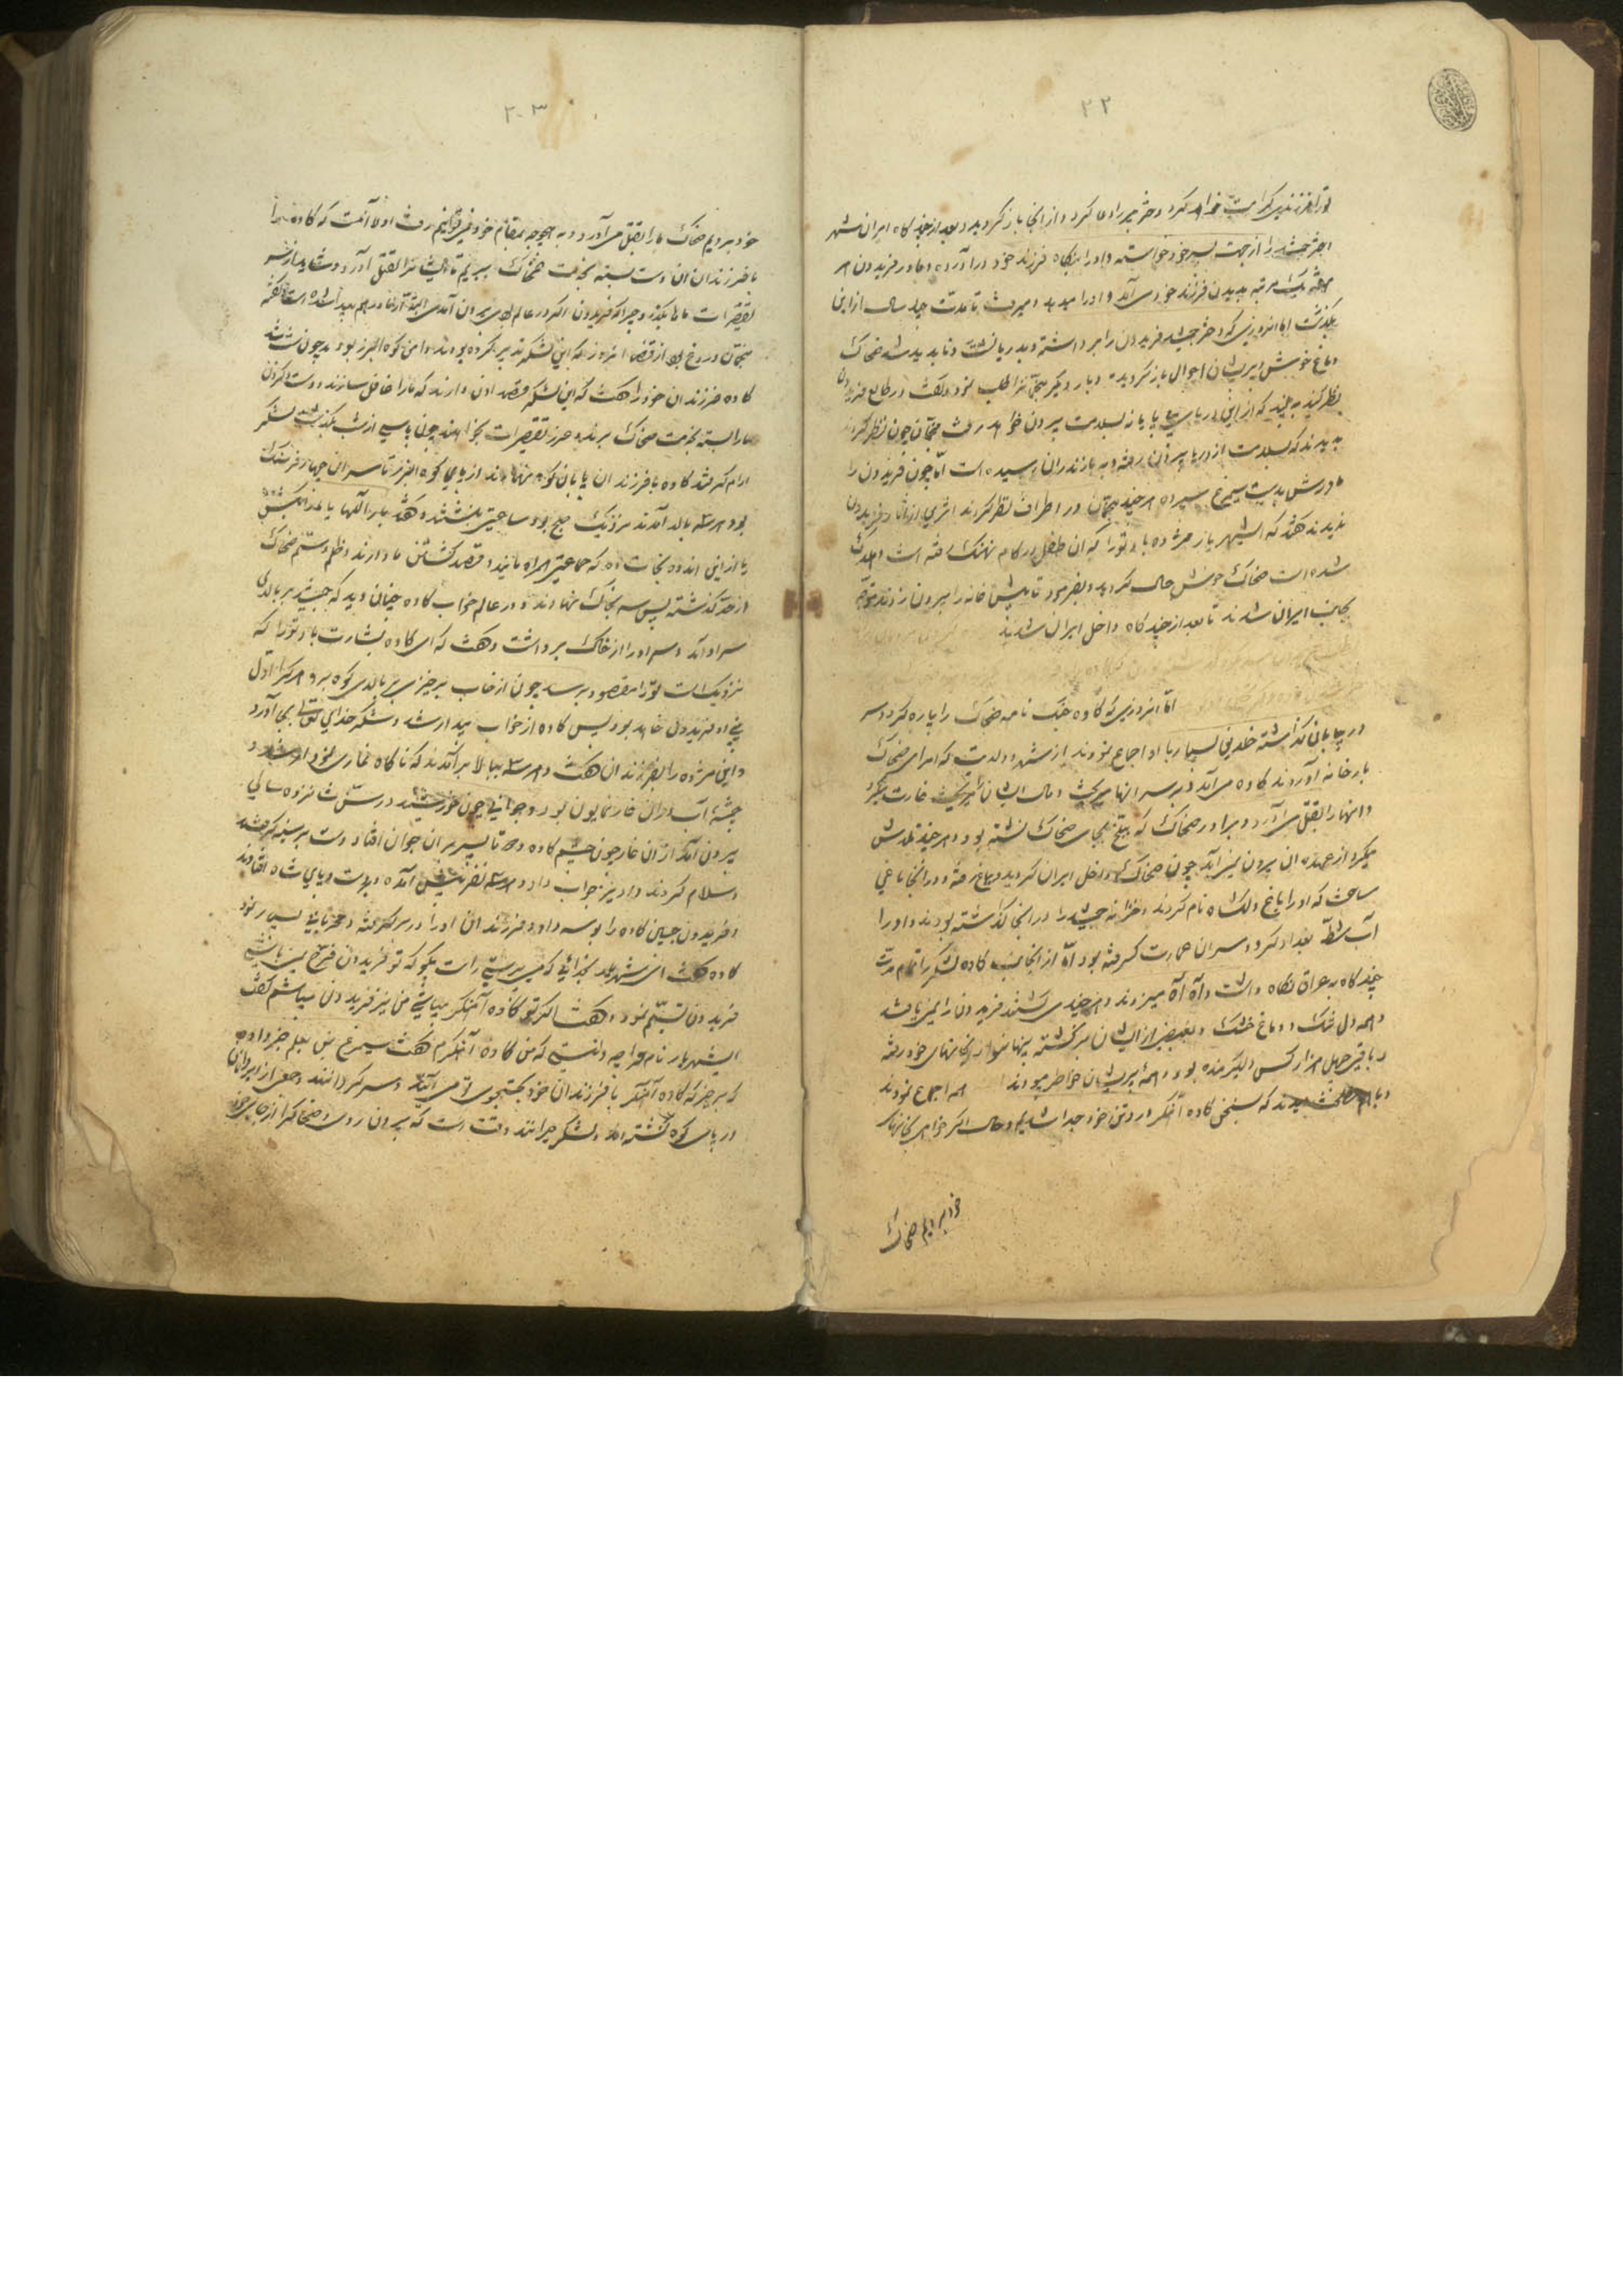 ۲۲
تو را فرزندی کرامت خواهد کرد و دختر جم را دعا کرد و از آنجا باز گردید و بعد از چند گاه ایران شهر
دختر جمشید را از جهت پسر خود خواسته و او را بنکاح فرزند خود در آورده و مادر فریدون هر
هفته یک مرتبه بدیدن فرزند خود می آمد و او را میدید و میرفت تا مدت چهل سال از این
بگذشت اما از روزی که دختر جمشید فریدون را برداشته و بدریا گشت و ناپدید شد ضحاک
دماغ خوش پریشان احوال باز گردید و بار دیگر منجمان را طلب نمود و گفت در طالع فریدون
نظر کنید به بینید که از این دریای بی پایان بسلامت بیرون خواهد رفت منجمان چون نظر کردند
بدیدند که بسلامت از دریا بیرون رفته و به مازندران رسیده است اما چون فریدون را
مادرش بدست سیمرغ سپرده هر چند منجمان در اطراف نظر کردند اثری از آثار فریدون
ندیدند گفتند که ای شهریار مژده باد تو را که آن طفل در کام نهنگ رفته است و هلاک
شده است ضحاک خوش حال گردید و بفرمود تا پیش خانه را بیرون زدند و متوجه
بجانب ایران شدند تا بعد از چند گاه داخل ایران شدند
اما از روزی که کاوه جنگ نامه ضحاک را پاره کرد و سر
در بیابان گذاشته خلقی بسیار با او اجماع نمودند از شهر و ولایت که امرای ضحاک
بارخانه آوردند کاوه می آمد و بر سر آنها میریخت و مال ایشان را غارت میکرد
و آنها را بقتل می آورد و برادر ضحاک که ببلخ بجای ضحاک نشسته بود و هر چند تلاش
میکرد از عهده آن بیرون نمی آید چون ضحاک داخل ایران گردید رفته و در آنجا باغی
ساخت که او را باغ دلگشا نام کردند و خزانه جمشید را در آنجا گذاشته بودند و او را
آب شط بغداد کرد و سران عمارت گرفته بود اما از آنجانب کاوه لشکر را تمام مدت
چند گاه به عراق نگاه داشت و آه آه میزدند و هر چند می گشتند فریدون را نمی یافتند
و همه دل تنگ و دماغ خشک و بعضی از ایشان برگشته پنهان بخانهای خود رفته
و باقی چهل هزار کس دیگر مانده بود و همه پریشان خاطر میبودند همه اجماع نمودند
و با هم مصلحت دیدند که بسخن کاوه آهنگر از وطن خود جدا شدیم و حال اگر خواهیم بخانهای
خود برویم ضحاک
۲۰۳
خود برویم ضحاک ما را بقتل می آورد و به هیچ وجه بمقام خود نمی توانیم رفت اولا آنست که کاوه را
با فرزندان آن دست بسته بخدمت ضحاک ببریم تا ایشان را بقتل آورد و شاید از سر
تقصیرات ما بگذرد چرا که فریدون اگر در عالم بیرون آمدی
منجمان دروغ بود از قضا از روز که این لشکر تدبیر کرده بودند دامن کوه البرز بود و چون شب شد
کاوه فرزندان خود را گفت که این لشکر قصد آن دارند که ما را غافل سازند و دست و گردن
ما را بسته بخدمت ضحاک برند و عذر تقصیرات بخواهند چون پاسی از شب بگذشت لشکر
آرام گرفتند کاوه با فرزندان پایان کوه نهادند از پای کوه البرز تا سر آن چهار فرسنگ
بود هر سه بالا آمدند نزدیک صبح بود ساعتی بنشستند و گفتند بار الها یا ما را بکش
یا از این اندوه نجات ده که جماعتی همراه مایند و قصد کشتن ما دارند و ظلم و ستم ضحاک
از حد گذشته پس سر بخاک نهادند و در عالم خواب کاوه چنان دید که جمشید بر بالای
سر او آمد و سر او را از خاک برداشت و گفت که ای کاوه بشارت باد تو را که
نزدیک است تو را مقصود برسد چون از خواب برخیزی بر بالای کوه برو هر که را اول
بینی او فریدون خواهد بود پس کاوه از خواب بیدار شد و شکر خدای تعالی بجای آورد
و این مژده را بفرزندان گفت و هر سه ببالا برآمدند که ناگاه غاری نمودار شد و
چشمه آب در آن غار نمایون بود و جوانی چون خورشید در سن شانزده سالی
بیرون آمد از آن غار چون چشم کاوه و دو تا پسر بر آن جوان افتاد دست بر سینه گرفتند
و سلام کردند و او نیز جواب داد و هر سه نفر پیش آمده و بدست و پای شاه افتادند
و فریدون جبین کاوه را بوسه داد و فرزندان او را در بر گرفته و مهربانی بسیار نمود
کاوه گفت ای شهریار بخدائی که می پرستی راست بگو که تو فریدون فرخ نمی باشی
فریدون تبسم نمود و گفت اگر تو کاوه آهنگر میباشی من نیز فریدون میباشم گفت
ای شهریار نام مرا چه دانستی که من کاوه آهنگرم گفت سیمرغ بمن خبر داده
که برخیز که کاوه آهنگر با فرزندان خود بجستجوی تو می آیند و سرگردانند و جمعی از ایرانیان
در پای کوه نشسته اند و لشکر حیرانند وقت است که بیرون روی و ضحاک را از جای خود